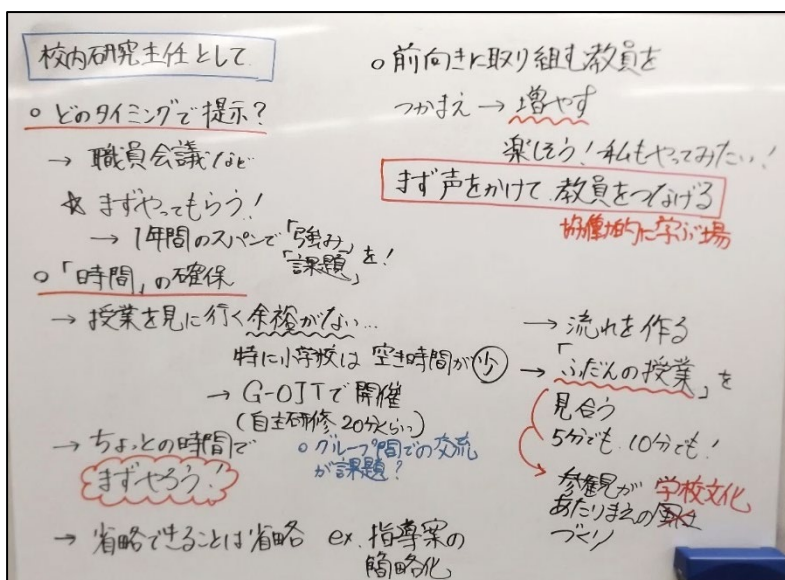 校内研究主任として
○ どのタイミングで提示?
→ 職員会議など
☆ まずやってもらう!
→ 1年間のスパンで「強み」「課題」を!
○「時間」の確保
→ 授業を見に行く余裕がない…
特に小学校は空き時間が少
→ G-OJTで開催
(自主研修 20分くらい)
→ ちょっとの時間で
まずやろう!
○ グループ間での交流
が課題?
→ 省略できることは省略 ex. 指導案の
簡略化
○ 前向きに取り組む教員を
つかまえ → 増やす
楽しそう!私もやってみたい!
まず声をかけて、教員をつなげる
協働的に学ぶ場
→ 流れを作る
→「ふだんの授業」を
見合う
5分でも、10分でも!
参観が 学校文化
あたりまえの
づくり